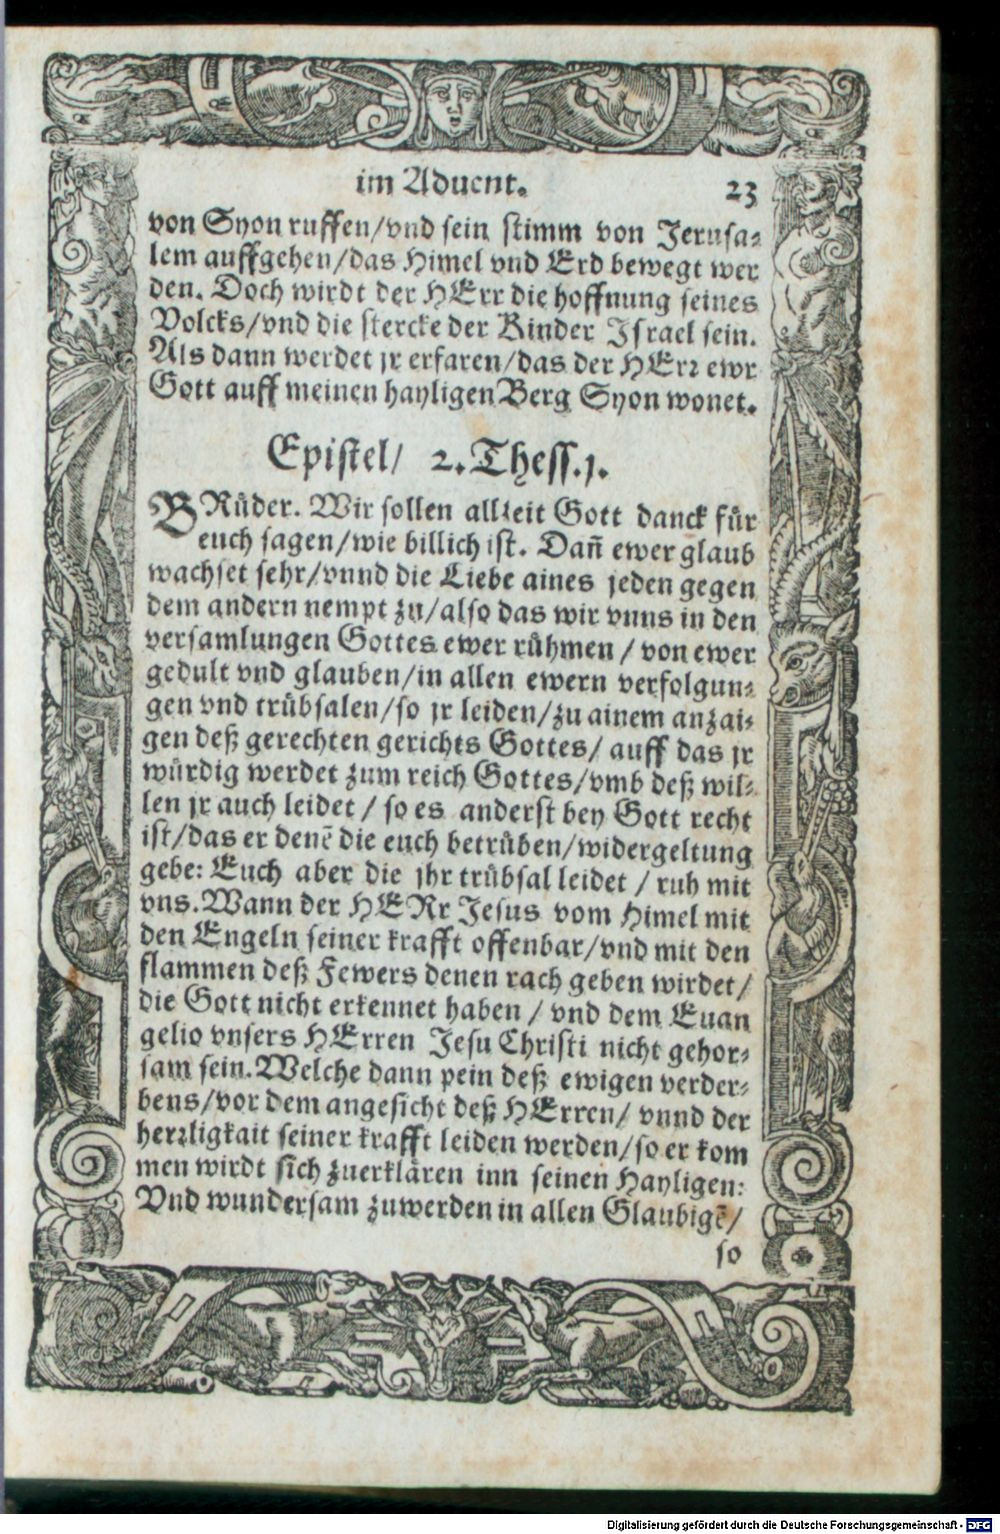 im Aduent. 23
von Syon ruffen/vnd sein stimm von Jerusa⸗
lem auffgehen/das Himel vnd Erd bewegt wer
den. Doch wirdt der HErr die hoffnung seines
Volcks/vnd die stercke der Kinder Israel sein.
Als dann werdet jr erfaren/das der HErꝛ ewr
Gott auff meinen hayligen Berg Syon wonet.
Epistel/ 2. Thess. 1.
BRůder. Wir sollen allzeit Gott danck für
euch sagen/wie billich ist. Dañ ewer glaub
wachset sehr/vnnd die Liebe aines jeden gegen
dem andern nempt zu/also das wir vnns in den
versamlungen Gottes ewer růhmen / von ewer
gedult vnd glauben/in allen ewern verfolgun⸗
gen vnd trübsalen/so jr leiden/zu ainem anzai⸗
gen deß gerechten gerichts Gottes/ auff das jr
würdig werdet zum reich Gottes/vmb deß wil⸗
len jr auch leidet / so es anderst bey Gott recht
ist/das er denē die euch betrüben/widergeltung
gebe: Euch aber die jhr trübsal leidet / ruh mit
vns. Wann der HERr Jesus vom Himel mit
den Engeln seiner krafft offenbar/vnd mit den
flammen deß Fewers denen rach geben wirdet/
die Gott nicht erkennet haben / vnd dem Euan
gelio vnsers HErren Jesu Christi nicht gehor⸗
sam sein. Welche dann pein deß ewigen verder⸗
bens/vor dem angesicht deß HErren/ vnnd der
herꝛligkait seiner krafft leiden werden/so er kom
men wirdt sich zuerklären inn seinen Hayligen:
Vnd wundersam zuwerden in allen Glaubigē/
so
Digitalisierung gefördert durch die Deutsche Forschungsgemeinschaft - DFG